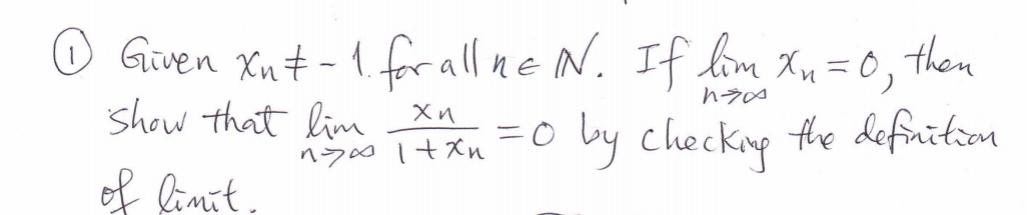 ① Given xₙ ≠ -1. for all n ∈ ℕ. If lim_{n→∞} xₙ = 0, then
show that lim_{n→∞} xₙ/(1+xₙ) = 0 by checking the definition
of limit.